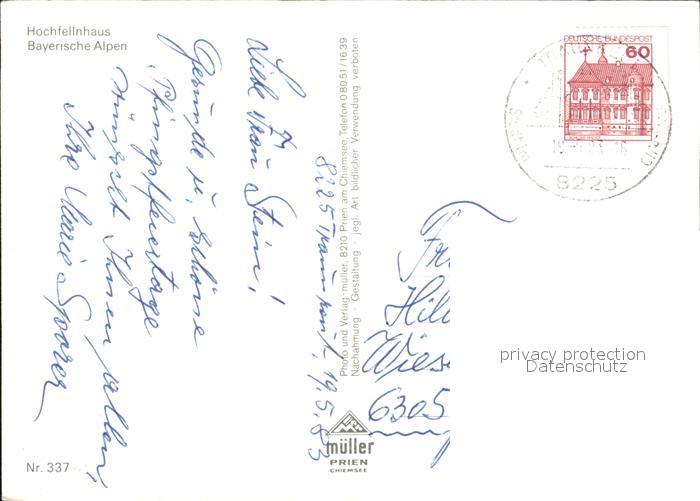 Hochfellnhaus
Bayerische Alpen
8225 Traunreut, 19.5.83
Liebe Frau Stein!
Gesunde u. schöne
Pfingstfeiertage
wünscht Ihnen allen,
Ihre Maria
Nr. 337
Photo und Verlag müller, 8210 Prien am Chiemsee, Telefon 08051/1639
Nachahmung · Gestaltung · jegl. Art bildlicher Verwendung verboten
müller
PRIEN
CHIEMSEE
DEUTSCHE BUNDESPOST
60
8225
Hil
Wies
6305
privacy protection
Datenschutz